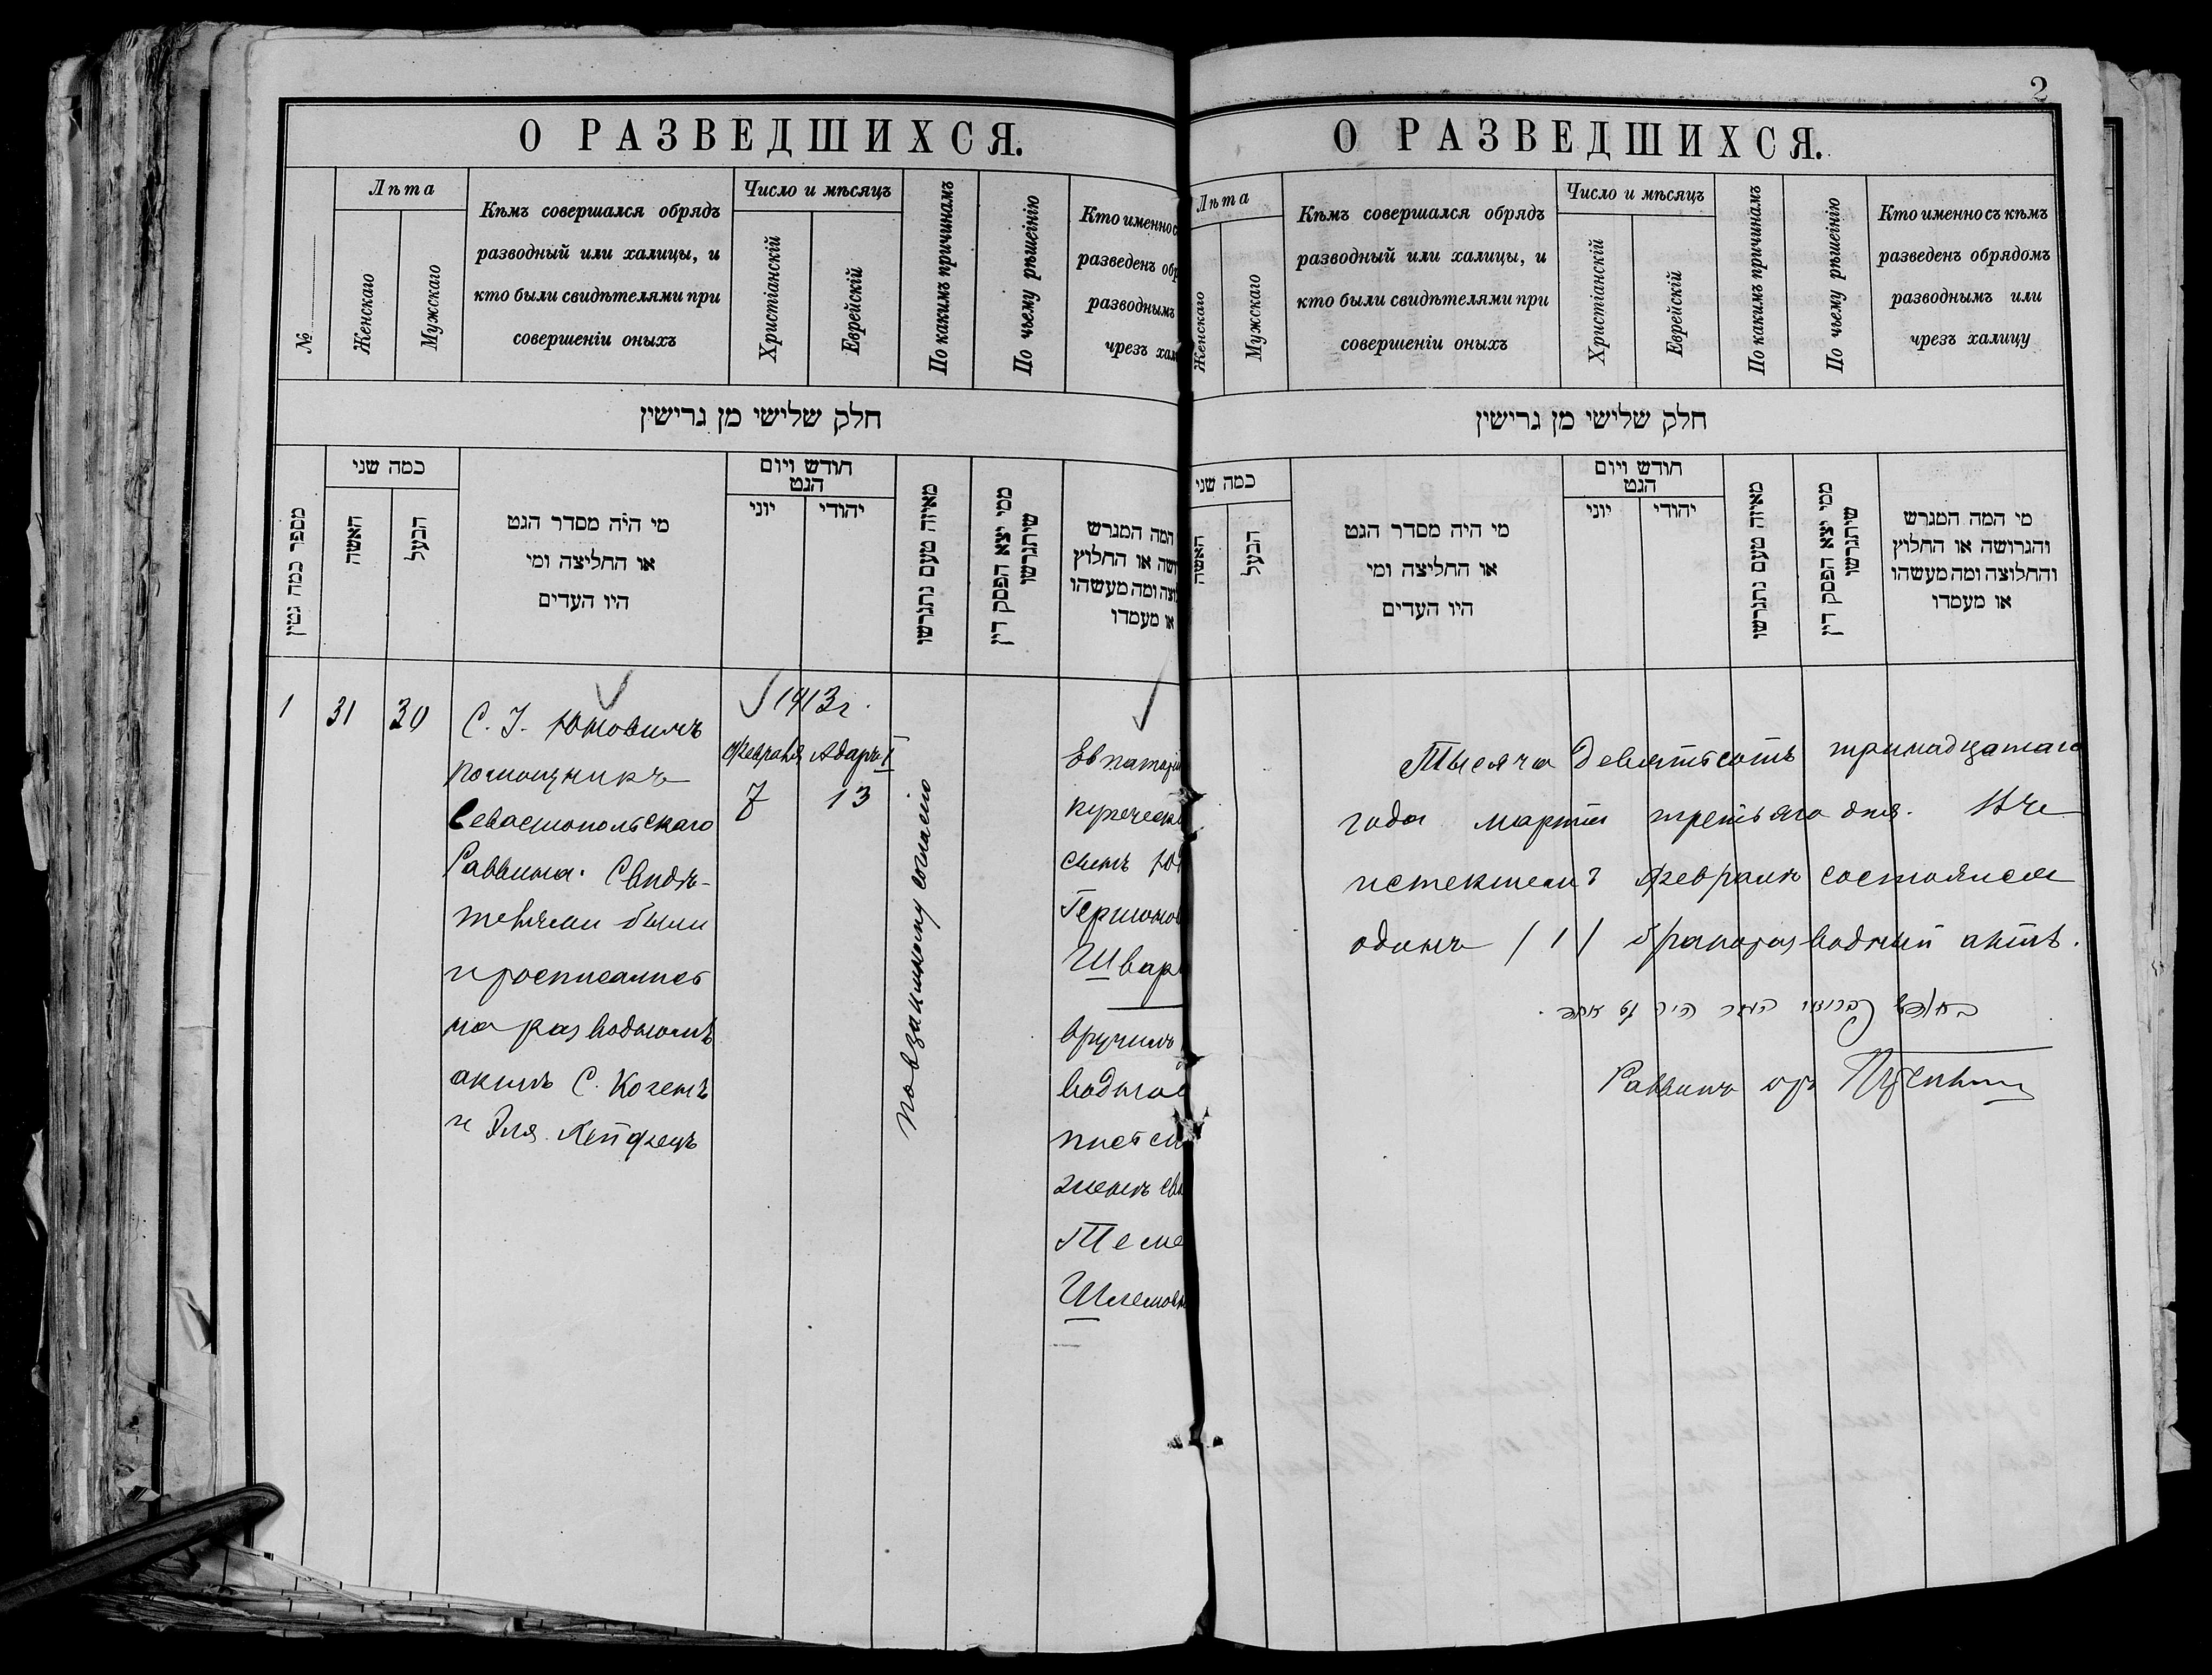 О РАЗВЕДШИХСЯ.
№
Лѣта
Женскаго
Мужскаго
Кѣмъ совершался обрядъ
разводный или халицы, и
кто были свидѣтелями при
совершеніи оныхъ
Число и мѣсяцъ
Христіанскій
Еврейскій
По какимъ причинамъ
По чьему рѣшенію
Кто именно с
разведенъ обр
разводнымъ
чрезъ хал
חלק שלישי מן גרישין
מספר כמה גטין
כמה שני
האשה
הבעל
מי היה מסדר הגט
או החליצה ומי
היו העדים
חודש ויום
הגט
יוני
יהודי
מאיזה טעם נתגרשו
ממי יצא הפסק דין
שיתגרשו
המה המגרש
ושה או החלוץ
וצה ומה מעשהו
או מעמדו
1
31
30
С. І. Юновичъ
помощникъ
Севастопольскаго
Раввина. Свидѣ-
телями были
и росписались
на разводномъ
актѣ С. Когенъ
и Эля
1913 г.
Февраля Адаръ I
7 13
По взаимному согласію
Евпаторі
купеческ
сынъ Ю
Гершонов
Швар
вручилъ
водное
письм
женѣ сво
Теме
Шлемовн
2
О РАЗВЕДШИХСЯ.
Лѣта
Женскаго
Мужскаго
Кѣмъ совершался обрядъ
разводный или халицы, и
кто были свидѣтелями при
совершеніи оныхъ
Число и мѣсяцъ
Христіанскій
Еврейскій
По какимъ причинамъ
По чьему рѣшенію
Кто именно съ кѣмъ
разведенъ обрядомъ
разводнымъ или
чрезъ халицу
חלק שלישי מן גרישין
כמה שני
האשה
הבעל
מי היה מסדר הגט
או החליצה ומי
היו העדים
חודש ויום
הגט
יוני
יהודי
מאיזה טעם נתגרשו
ממי יצא הפסק דין
שיתגרשו
מי המה המגרש
והגרושה או החלוץ
והחלוצה ומה מעשהו
או מעמדו
Тысяча девятьсотъ тринадцатаго
года марта третьяго дня. Въ
истекшемъ февралѣ состоялся
одинъ /1/ бракоразводный актъ.
היה גט אחד.
Раввинъ